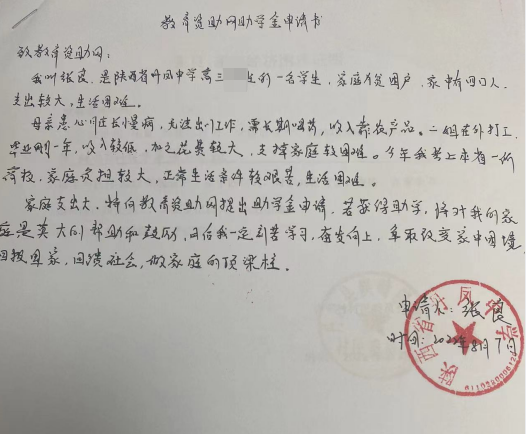 教育资助网助学金申请书
致教育资助网：
我叫张良，是陕西省丹凤中学高三 一名学生，家庭为贫困户，家中有四口人，
支出较大，生活困难。
母亲患心 慢病，无法出门工作，需长期喝药，收入靠农产品。二姐在外打工，
毕业刚一年，收入较低，加之花费较大，支撑家庭较困难。今年我考上本省一所
高校，家庭负担较大，正常生活条件较艰苦，生活困难。
家庭支出大，特向教育资助网提出助学金申请，若获得助学，将对我的家
庭是莫大的帮助和鼓励，日后我一定刻苦学习，奋发向上，争取改变家中困境
回报国家，回馈社会，做家庭的顶梁柱。
申请人：张良
时间：202 年8月7日
陕西省丹凤中学